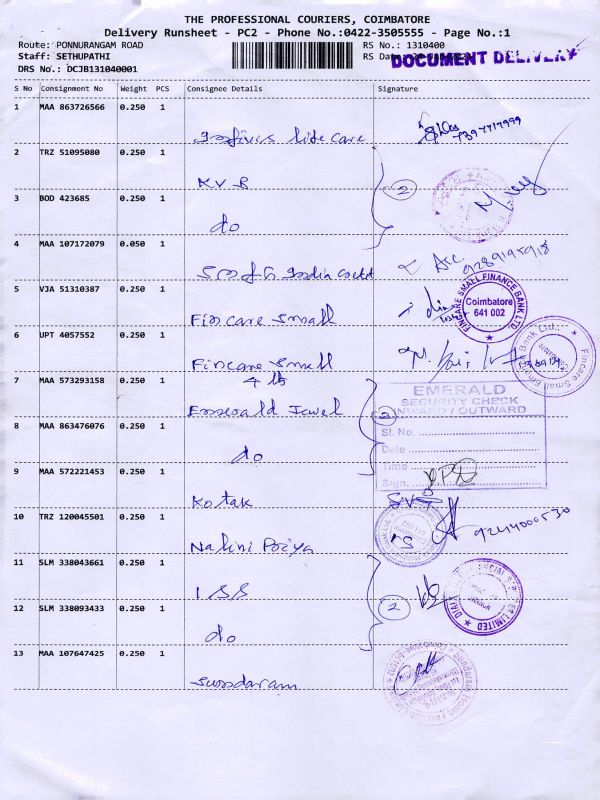 THE PROFESSIONAL COURIERS, COIMBATORE
Delivery Runsheet - PC2 - Phone No.:0422-3505555 - Page No.:1
Route: PONNURANGAM ROAD
RS No.: 1310400
Staff: SETHUPATHI
DRS No.: DCJB131040001
DOCUMENT DELIVERY
S No Consignment No Weight PCS Consignee Details Signature
1 MAA 863726566 0.250 1
life care
2 TRZ 51095080 0.250 1
KVB
2
3 BOD 423685 0.250 1
do
4 MAA 107172079 0.050 1
India
5 VJA 51310387 0.250 1
Fincare Small
FINCARE SMALL FINANCE BANK LTD.
Coimbatore
641 002
6 UPT 4057552 0.250 1
Fincare Small
Fincare Small Bank Ltd.,
7 MAA 573293158 0.250 1
4th
Emerald Jewel
EMERALD
SECURITY CHECK
INWARD / OUTWARD
Sl. No.
Date
Time
Sign.
8 MAA 863476076 0.250 1
do
2
9 MAA 572221453 0.250 1
Kotak
10 TRZ 120045501 0.250 1
Nalini Poriya
9244000530
11 SLM 338043661 0.250 1
ISS
2
LIMITED
12 SLM 338093433 0.250 1
do
13 MAA 107647425 0.250 1
Sundaram
Sundaram Home Finance